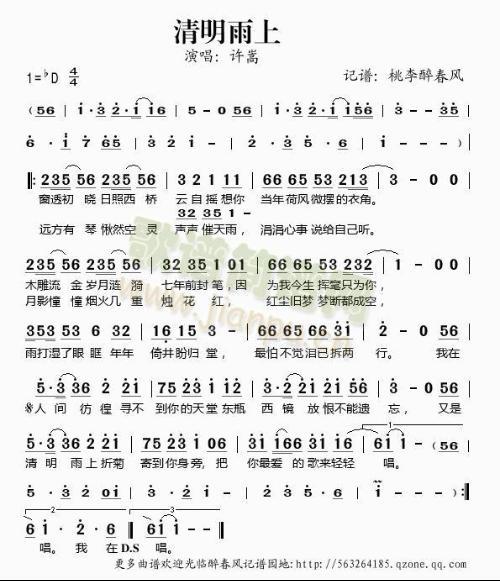 清明雨上
演唱：许嵩
1=♭D 4/4 记谱：桃李醉春风
(56 | 1·3 2·1 16 | 5-056 | 1·3 2·1 2·3 |
6·1 7 65 | 5·3 56 | 1·2 3·2 | 1---) |
‖: 235 56 235 56 | 32 1 11 | 66 65 53 213 | 3-00 |
窗透初 晓 日照西 桥 云自摇想你 当年荷风微摆的衣角。
32 35
远方有 琴 愀然空 灵 声声 催天雨，涓涓心事 说给自己听。
235 56 235 56 | 32 35 1 01 | 66 65 53 232 | 1-00 |
木雕流 金 岁月涟 漪 七年前封笔，因 为我今生 挥毫只为你，
月影憧 憧 烟火几 重 烛花红， 红尘旧梦 梦断都成空，
353 53 23 21 | 16 15 3- | 66 65 53 232 | 1-056 |
雨打湿了眼眶 年年 倚井盼归堂， 最怕不觉泪已拆两 行。 我在
5·3 36 2 221 | 75 223 21 0 | 3·2 221 12 17 | 5-056 |
人 间 彷徨 寻不 到你的天堂 东瓶 西镜 放恨不能遗 忘， 又是
5·3 36 2 221 | 75 223 21 01 | 31 166 31 16 | 61 1-(56 |
清 明 雨上折菊 寄到你身旁，把 你最爱的 歌来轻轻 唱。
5·3 56 | 1·2 3·2 | 1---) :‖
唱。 我 在D.S 唱。
更多曲谱欢迎光临醉春风记谱园地:http://563264185.qzone.qq.com